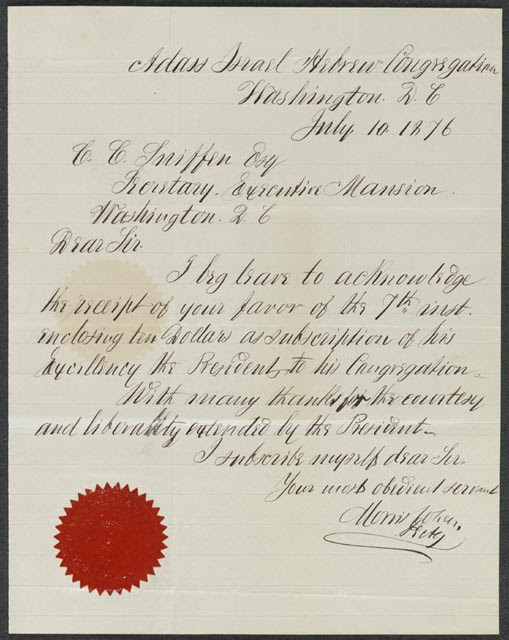 Adass Israel Hebrew Congregation
Washington. D. C
July 10 1876
C. C. Sniffen Esq
Secretary. Executive Mansion.
Washington. D. C
Dear Sir.
I beg leave to acknowledge
the receipt of your favor of the 7th inst.
enclosing ten Dollars as subscription of his
Excellency the President, to this Congregation—
With many thanks for the courtesy
and liberality extended by the President—
I subscribe myself dear Sir.
Your most obedient servant
Morris Cohen,
Secty